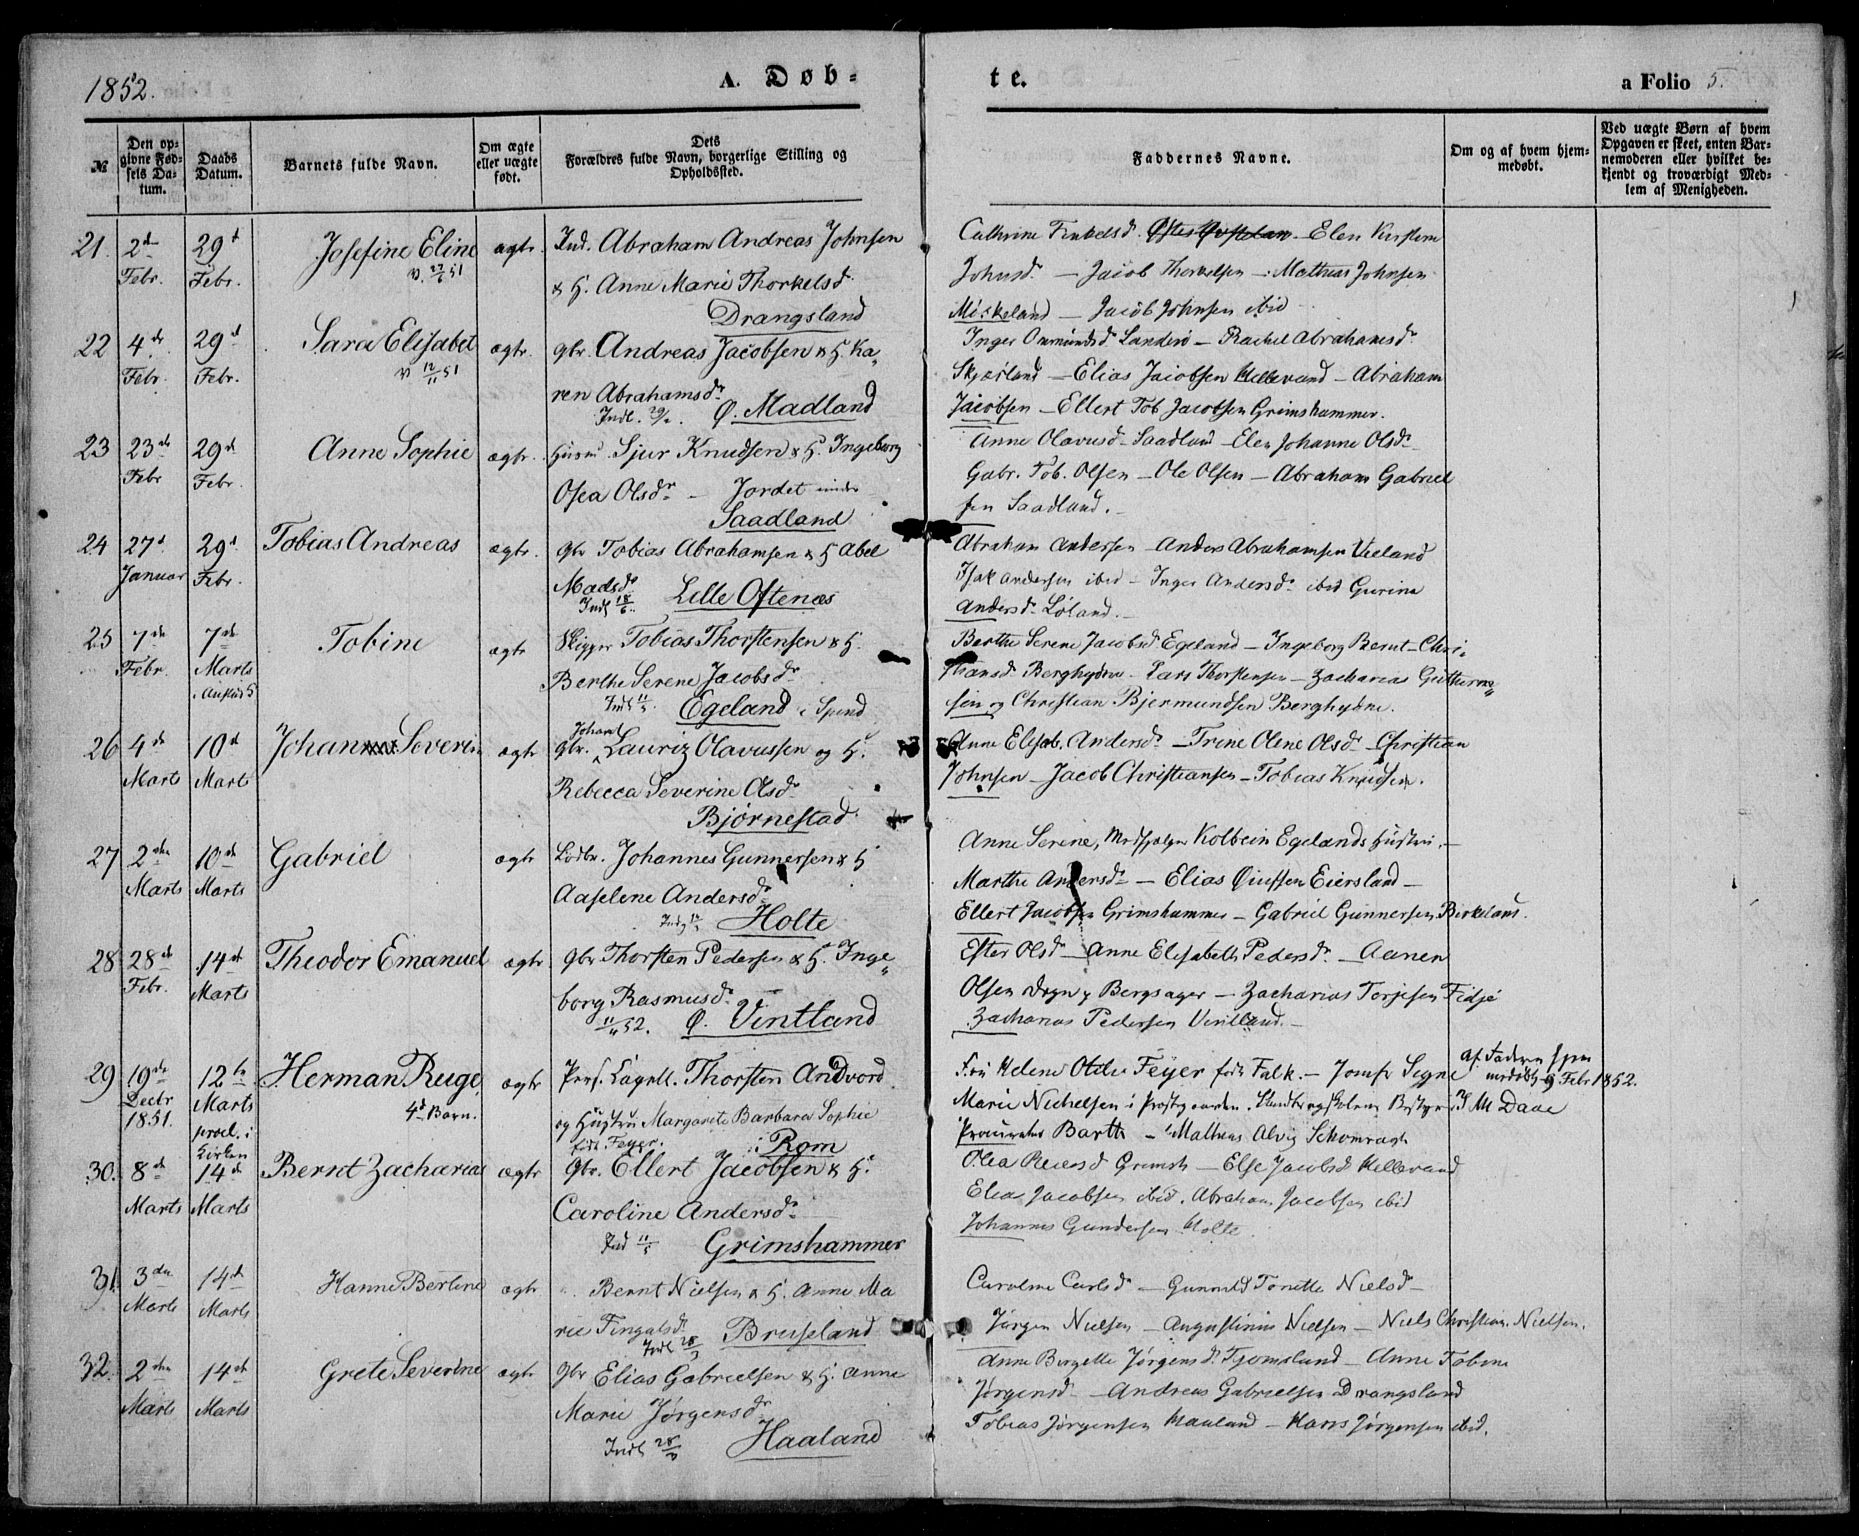 1852.
A. Døb-
te.
a Folio 5.
№
Den op-
givne Fød-
sels Da-
tum.
Daabs
Datum.
Barnets fulde Navn.
Om ægte
eller uægte
født.
Dets
Forældres fulde Navn, borgerlige Stilling og
Opholdssted.
Faddernes Navne.
Om og af hvem hjem-
medøbt.
Ved uægte Børn af hvem
Opgaven er skeet, enten Bar-
nemoderen eller hvilket be-
kjendt og troværdigt Med-
lem af Menigheden.
21. 2d 29d Josefine Eline ægtr. Ind. Abraham Andreas Johnsen
Febr. Febr. & H. Anne Marie Thorkelsd.
Drangsland
Elen Kirstine
Johnsd. — Jacob Thorkelsen — Mathias Johnsen
Miskeland — Jacob Johnsen ibid
22 4de 29d Sara Elisabet ægtr. gbr. Andreas Jacobsen & H. Ka-
Febr. Febr. v 12/11 51 ren Abrahamsdr
Ø. Madland
Inger Onmundsd. Sanderø — Rachel Abrahamsdr
Skjørland — Elias Jacobsen Hellevand — Abraham
Jacobsen — Ellert Tob. Jacobsen Grimshammer.
23 23de 29d Anne Sophie ægtr. Husm. Sjur Knudsen & H. Ingeborg
Febr Febr. Osea Olsdr — Jordet under
Saadland
Anne Olavusd. Saadland — Elen Johanne Olsdr
Gabr. Tob. Olsen — Ole Olsen — Abraham Gabriel
sen Saadland.
24 27d 29d Tobias Andreas ægtr. gbr Tobias Abrahamsen & H Abel
Januar Febr. Madsdr
Indl 18/6. Lille Oftenæs
Abraham Andersen — Anders Abrahamsen Vieland
Isak Andersen ibid — Inger Andersdr ibid Gurine
Andersdr Løland.
25 7de 7de Tobine ægtr Skipper Tobias Thorstensen & H.
Febr. Marts Berthe Serene Jacobsdr
Egeland i Spind
Berthe Serene Jacobsd Egeland — Ingeborg Bernt-Chri-
stiansd. Berghydne — Lars Thorstensen — Zacharias Gutturm-
sen og Christian Bjermundsen Berghydne.
26 4de 10d Johan Severin ægtr gbr. Johan Lauriz Olavussen og H.
Marts Marts Rebecca Severine Olsdr
Bjørnestad
Anne Elisab. Andersdr — Trine Olene Olsdr Christian
Johnsen — Jacob Christiansen — Tobias Knudsen.
27 2den 10de Gabriel ægtr Johannes Gunnersen & H
Marts Marts Aaselene Andersdr
Holte
Anne Serene, Medhjelper Kolbein Egelands Hustru. —
Marthe Andersdr — Elias Eiersland —
Ellert Jacobsen Grimshammer — Gabriel Gunnersen Birkeland.
28 28de 14de Theodor Emanuel ægtr gbr Thorsten Pedersen & H. Inge-
Febr. Marts borg Rasmusdr
11/11 52. Ø. Vintland
Ester Olsd — Anne Elisabeth Pedersdr — Aanen
Olsen Bergsager — Zacharias Torjesen Fidje
Zacharias Pedersen Vintland. —
29 19de 12te Herman Ruge ægtr Thorsten Andvord
Decbr 1851. Marts 4d Barn. og Hustru Margarete Barbara Sophie
procl. i Kirken født Feyer. i Rom
Fru Helene Feyer født Falk. — Jomfr Signe
Marie Nichelsen i Præstegaarden. S. M. Daae
Procurator Barth — Mathias Alvig
af Faderen hjem
medøbt 9 Febr 1852.
30. 8de 14de Bernt Zacharias ægtr gbr. Ellert Jacobsen & H.
Marts Marts Caroline Andersdr
Ind 11/5 Grimshammer
Olea Reiersd Grimsh — Else Jacobsd Hellevand
Elias Jacobsen ibid. Abraham Jacobsen ibid
Johannes Gundersen Holte
31. 3die 14de Hanne Bertine ægtr Bernt Nielsen & H. Anne Ma
Marts Marts rie Fingalsdr
Bruseland
Caroline Carlsdr — Gunnild Tonette Nielsdr —
Jørgen Nielsen — Augustinus Nielsen — Niels Christian Nielsen.
32. 2den 14de Grete Severine ægtr gbr Elias Gabrielsen & H. Anne
Marts Marts Marie Jørgensdr
Indl 28/3 Haaland
Anne Birgette Jørgensdr Tjomsland — Anne Tobine
Jørgensd — Andreas Gabrielsen Drangsland
Tobias Jørgensen Haaland — Hans Jørgensen ibid.